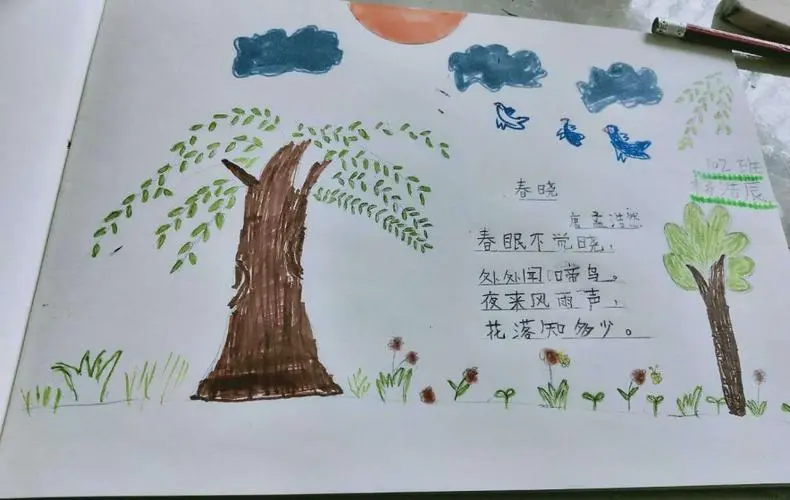 102班
春晓
唐 孟浩然
春眠不觉晓，
处处闻啼鸟。
夜来风雨声，
花落知多少。